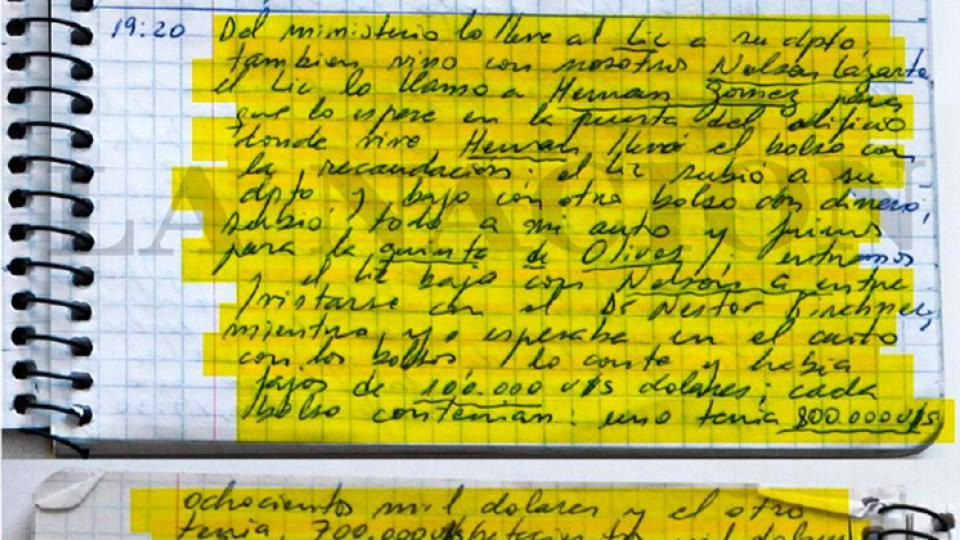 19:20 Del mimisterio lo lleve al Lic a su dpto,
tambien vino con nosotros Nelson Lazarte
el Lic lo llamo a Hernan Gomez para
que lo espere en la puerta del edificio
donde vive Hernan llevó el bolso con
la recaudación; el Lic subió a su
dpto y bajo con otro bolso con dinero,
subió todo a mi auto y fuimos
para la quinta de Olivos; entramos
y el Lic bajo con Nelson a entre
/vistarse con el Dr Nestor Kirchner,
mientras yo esperaba en el auto
con los bolsos, lo conte y habia
fajos de 100.000 U$S dolares; cada
bolso contenian: uno tenia 800.000 U$S
ochocientos mil dolares y el otro
tenia, 700.000 U$S setecientos mil dolares
LA NACION